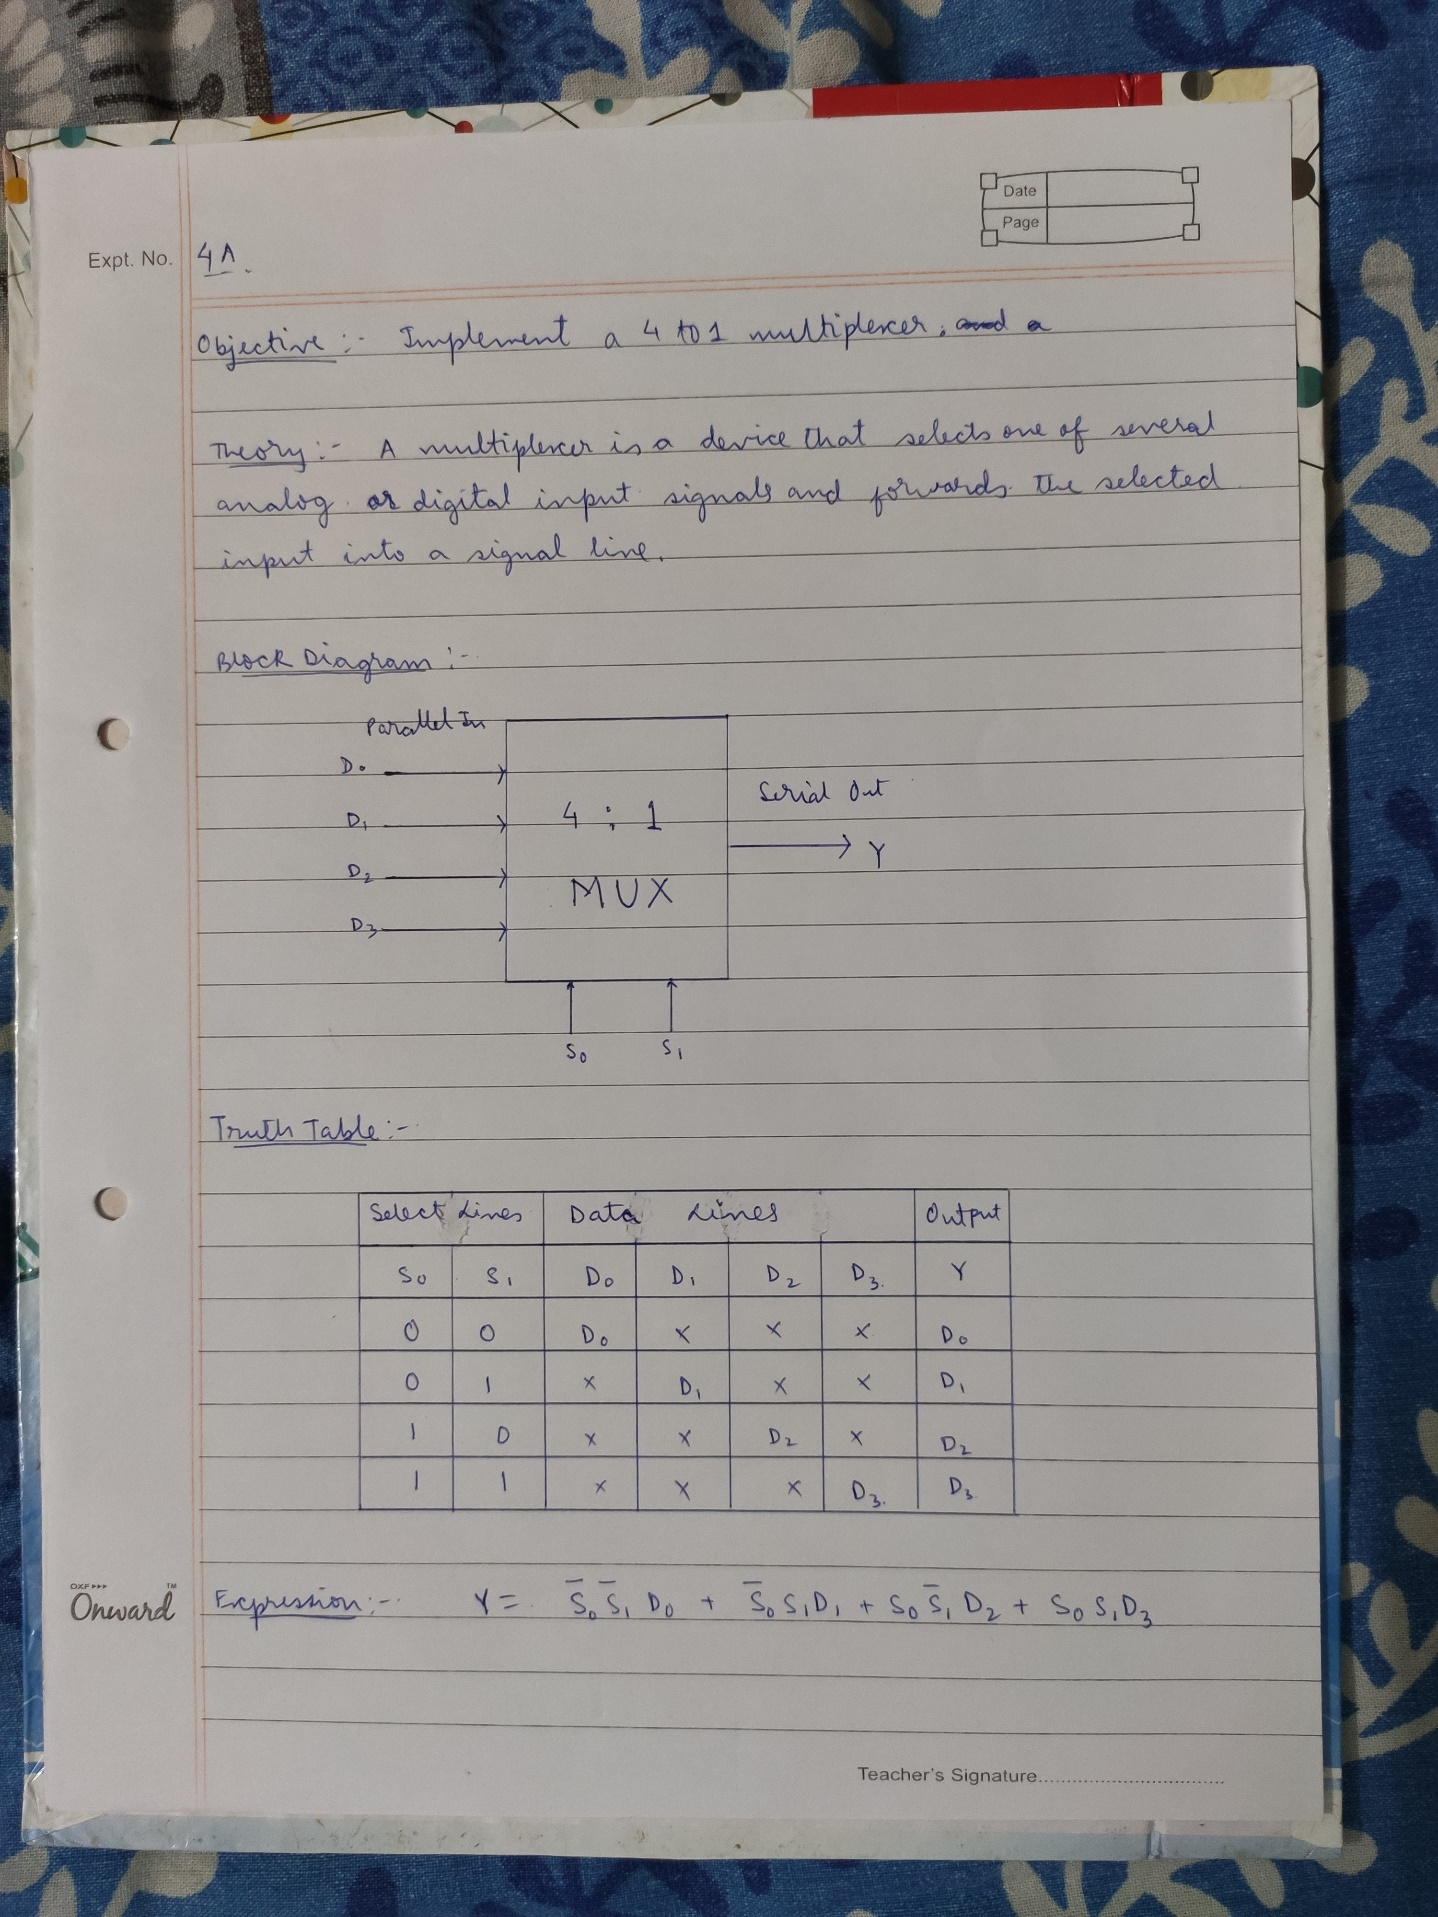 Date
Page
Expt. No. 4A.
Objective :- Implement a 4 to 1 multiplexer, and a
Theory :- A multiplexer is a device that selects one of several
analog or digital input signals and forwards the selected
input into a signal line.
Block Diagram :-
Parallel In
D0
D1
D2
D3
4 : 1
MUX
Serial Out
Y
S0 S1
Truth Table :-
Select Lines Data Lines Output
S0 S1 D0 D1 D2 D3. Y
0 0 D0 x x x D0
0 1 x D1 x x D1
1 0 x x D2 x D2
1 1 x x x D3. D3
Expression :- Y = S̅0 S̅1 D0 + S̅0 S1 D1 + S0 S̅1 D2 + S0 S1 D3
OXF▸▸▸ TM
Onward
Teacher's Signature....................................